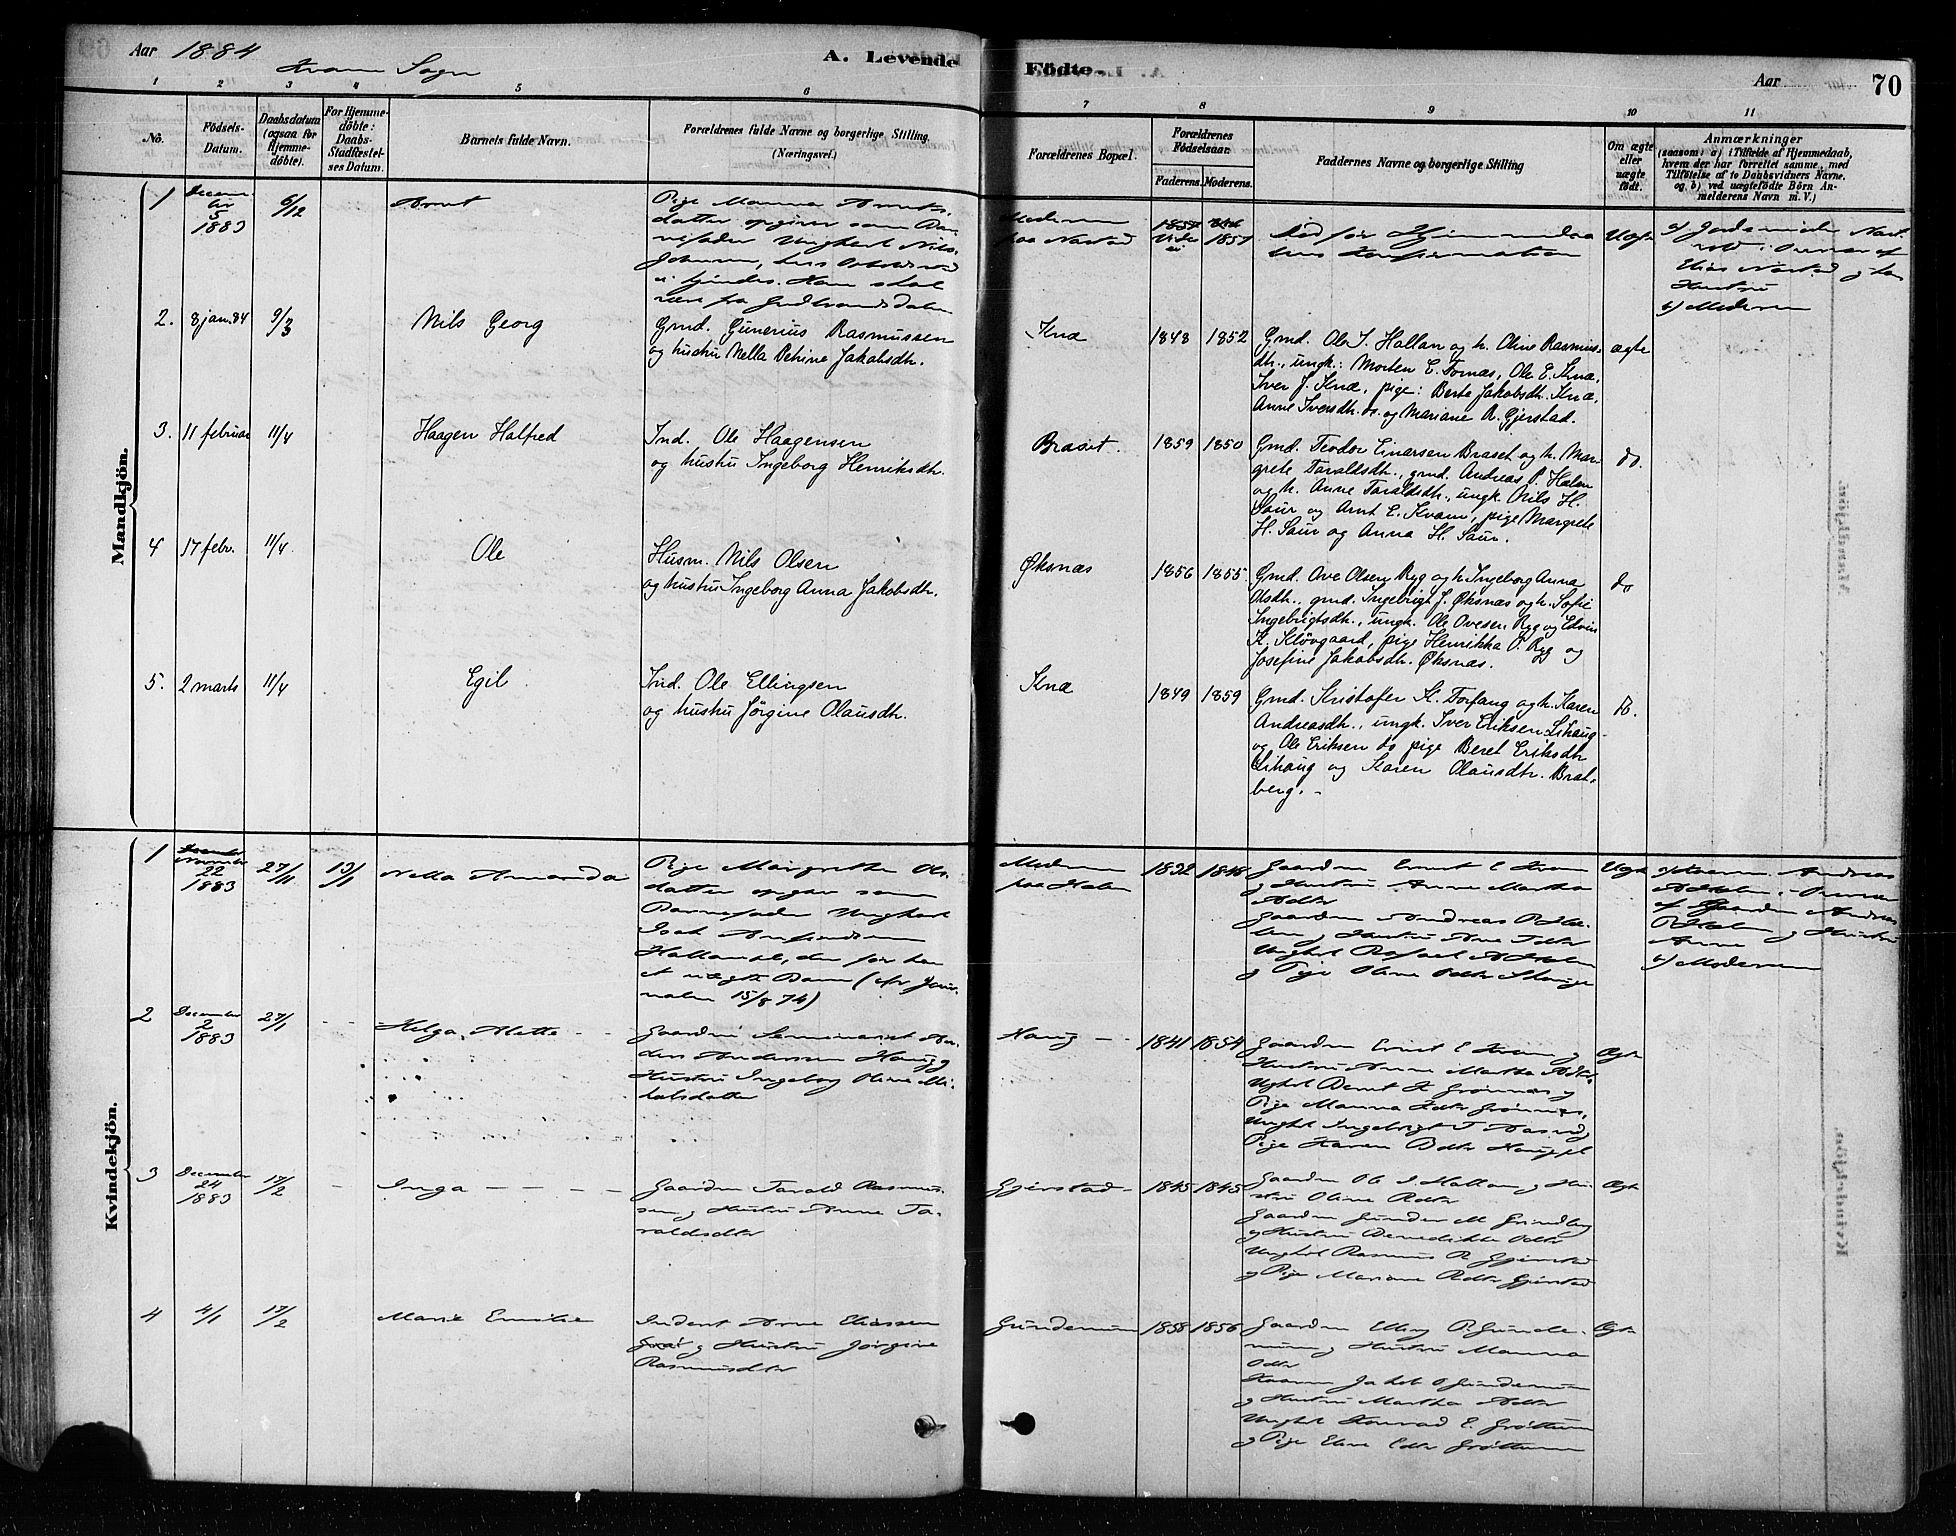 Aar 1884
Kvam Sogn
A. Levende Födte.
Aar
70
1 2 3 4 5 6 7 8 9 10 11
No.
Födsels-Datum.
Daabsdatum (ogsaa for Hjemmedöbte).
For Hjemmedöbte: Daabs-Stadfæstelses Datum.
Barnets fulde Navn.
Forældrenes fulde Navne og borgerlige Stilling.
(Næringsvei.)
Forældrenes Bopæl.
Forældrenes Födselsaar.
Faderens. Moderens.
Faddernes Navne og borgerlige Stilling
Om ægte eller uægte födt.
Anmærkninger
(saasom: a) i Tilfælde af Hjemmedaab,
hvem der har forrettet samme, med
Tilföielse af to Daabsvidners Navne,
og b) ved uægtefödte Börn An-
melderens Navn m. V.)
Mandkjön.
1
December
5
1883
6/12
Arnt
Pige Manna Arnts-
datter opgiver som Bar-
nefader Ungkarl Nils
Johnsen, hvis
ei findes. Han skal
være fra Gudbrandsdalen
Moderen
paa Nastad
1857
Død før Hjemmedaa
bens Konfirmation
Uægte
Elias Nastad og hans
Hustru
b) Moderen
2. 8 jan. 84 9/3 Nils Georg
Gmd. Gunerius Rasmussen
og hustru Nella Petrine Jakobsdtr.
Knæ 1848 1852
Gmd. Ole J. Hallan og h. Oline Rasmus-
dtr., ungk.: Morten E. Fornæs, Ole E. Knæ,
Iver J. Knæ, pige: Berte Jakobsdtr. Knæ,
Anne Iversdtr. ds. og Mariane R. Gjerstad.
ægte
3. 11 februar 11/4 Haagen Halfred
Ind. Ole Haagensen
og hustru Ingeborg Henriksdtr.
Braset. 1859 1850
Gmd. Teodor Einarsen Braset og h. Mar-
grete Taraldsdtr., gmd. Andreas P. Halen
og h. Anne Taraldsdtr., ungk. Nils H.
Saur og Arnt E. Kvam, pige Margrete
H. Saur og Anna H. Saur.
do.
4 17 febr. 11/4 Ole
Husm. Nils Olsen
og hustru Ingeborg Anna Jakobsdtr.
Øksnæs 1856 1855
Gmd. Ove Olsen Ryg og h. Ingeborg Anna
Olsdtr., gmd. Ingebrigt J. Øksnæs og h. Sofie
Ingebrigtsdtr., ungk. Ole Ovesen Ryg og Edvin
K. Kløvgaard, pige Henrikka O. Ryg og
Josefine Jakobsdtr. Øksnæs.
do
5. 2 marts 11/4 Egil
Ind. Ole Ellingsen
og hustru Jørgine Olausdtr.
Knæ 1849 1859
Gmd. Kristofer K. Forfang og h. Karen
Andreasdtr., ungk. Iver Eriksen Lihaug
og Ole Eriksen ds pige Beret Eriksdtr
Lihaug og Karen Olausdtr. Brat-
berg.
do.
Kvindekjön.
1
November
22
1883
27/11
13/1
Nella Amanda
Pige Margrethe Ols-
datter opgiver som
Barnefader Ungkarl
Isak
, der før har
et uægte Barn (cfr. Jour-
nalen 15/8 74)
Moderen
paa Halen
1832 1848
Gaardm Ernst E Kvam
og Hustru Anne Martha
Adtr
Gaardm Andreas P Ha-
len og Hustru Anne Tdtr
Ungkarl Rafael A Halen
og Pige Oline Odtr
Uægte
a) Andreas
af Gaardm Andreas
P Halen og Hustru
Anne
b) Moderen
2
December
2
1883
27/1
Helga Alette
Gaardm Seminarist An-
ders Andersen Haug og
Hustru Ingeborg Oline Mi-
kalsdatter
Haug 1841 1854
Gaardm Ernst E Kvam og
Hustru Anne Martha Adtr
Ungkarl Bernt K Grønnæs og
Pige Manna Kdtr Grønnæs,
Ungkarl Ingebrigt T
Pige Karen Bdtr
Ægte
3
December
24
1883
17/2
Inga
Gaardm Tarald Rasmus-
sen og Hustru Anne Ta-
raldsdtr
Gjerstad 1845 1845
Gaardm Ole J Hallan og Hu-
stru Oline Rdtr
Gaardm Gunder M Grindberg
og Hustru Benedikte Odtr
Ungkarl Rasmus R Gjerstad
og Pige Mariane Rdtr Gjerstad
Ægte
4 4/1 17/2 Marie Emilie
Inderst Arne Eliassen
og Hustru Jørgine
Rasmusdtr
Gundemun 1858 1856
Gaardm Elling P. Gunde-
mun og Hustru Manna
Odtr
Jakob O Gundemun
og Hustru Martha Adtr
Ungkarl Konrad E. Grøttum
og Pige Eline Edtr Grøttum
Ægte